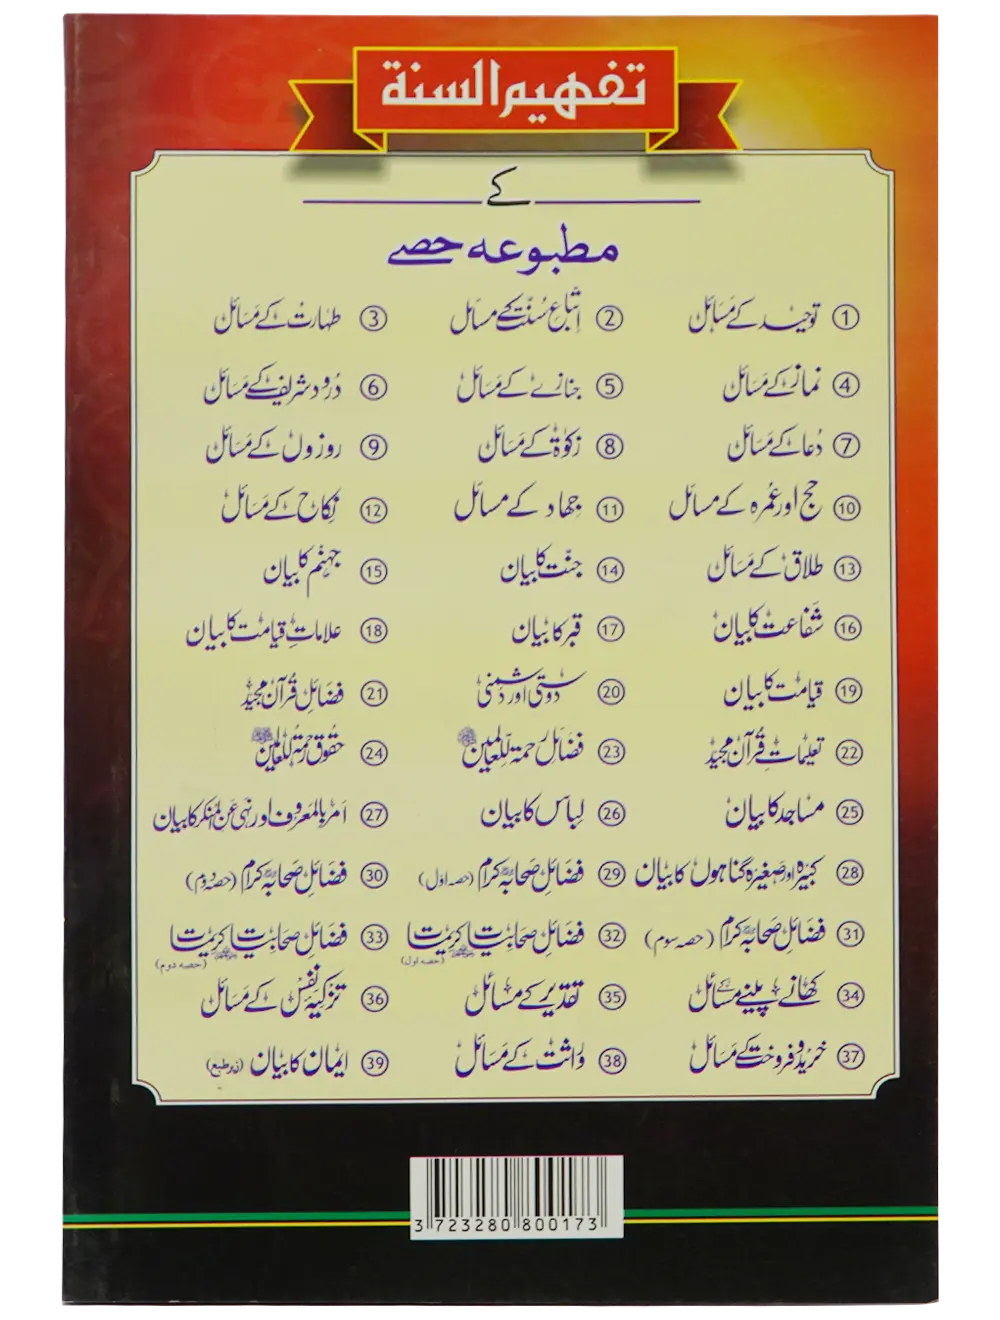 تفہیم السنة
کے
مطبوعہ حصے
① توحید کے مسائل ② اتباع سُنّت کے مسائل ③ طہارت کے مسائل
④ نماز کے مسائل ⑤ جنازے کے مسائل ⑥ دُرود شریف کے مسائل
⑦ دُعا کے مسائل ⑧ زکوٰۃ کے مسائل ⑨ روزوں کے مسائل
⑩ حج اور عُمرہ کے مسائل ⑪ جہاد کے مسائل ⑫ نکاح کے مسائل
⑬ طلاق کے مسائل ⑭ جنّت کا بیان ⑮ جہنم کا بیان
⑯ شفاعت کا بیان ⑰ قبر کا بیان ⑱ علاماتِ قیامت کا بیان
⑲ قیامت کا بیان ⑳ دوستی اور دشمنی ㉑ فضائلِ قُرآن مجید
㉒ تعلیماتِ قُرآن مجید ㉓ فضائل رحمۃ لّلعالمین ㉔ حقوق رحمۃ لّلعالمین
㉕ مساجد کا بیان ㉖ لباس کا بیان ㉗ امر بالمعروف اور نہی عن المنکر کا بیان
㉘ کبیرہ اور صغیرہ گناہوں کا بیان ㉙ فضائلِ صحابہ کرام (حصہ اول) ㉚ فضائلِ صحابہ کرام (حصہ دوم)
㉛ فضائلِ صحابہ کرام (حصہ سوم) ㉜ فضائلِ صحابیات (حصہ اول) ㉝ فضائلِ صحابیات (حصہ دوم)
㉞ کھانے پینے کے مسائل ㉟ تقدیر کے مسائل ㊱ تزکیہ نفس کے مسائل
㊲ خرید و فروخت کے مسائل ㊳ وراثت کے مسائل ㊴ ایمان کا بیان (زیر طبع)
3 723280 800173